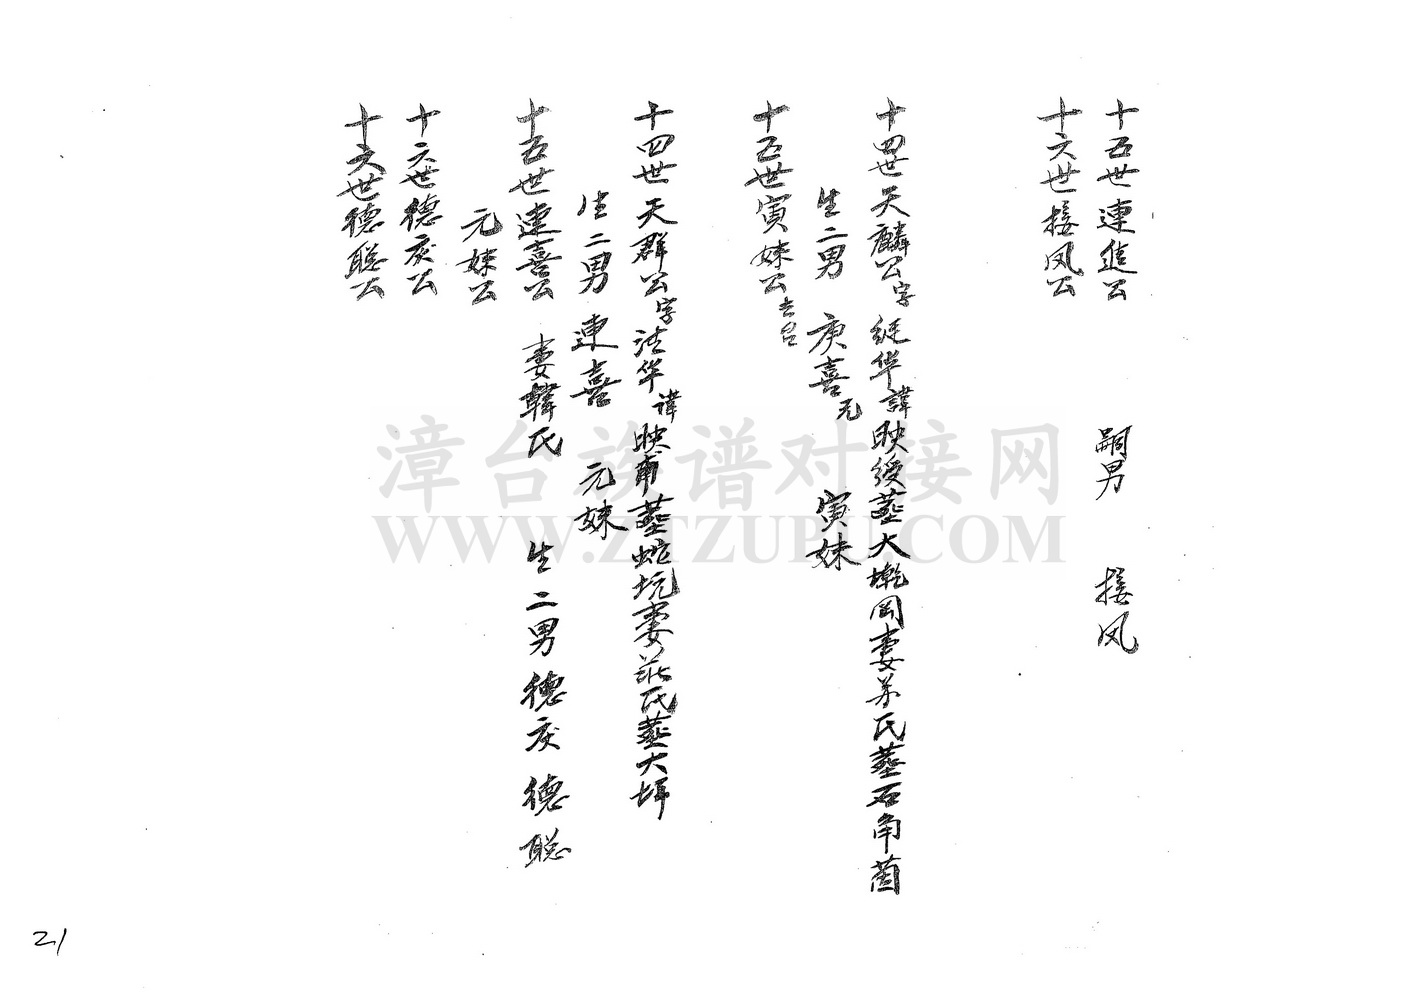 十五世連進公 嗣男 接凤
十六世接凤公
十四世天麟公字繼华諱映绶墓大墘岡妻弟氏墓石角茵
生二男 庚喜元 寅妹
十五世寅妹公去台
十四世天群公字法华諱映甫墓蛇坑妻莊氏墓大坪
生二男 連喜 元妹
十五世連喜公 妻韓氏 生二男德庆 德聪
元妹公
十六世德庆公
十六世德聪公
漳台族谱对接网
WWW.ZTZUPU.COM
21